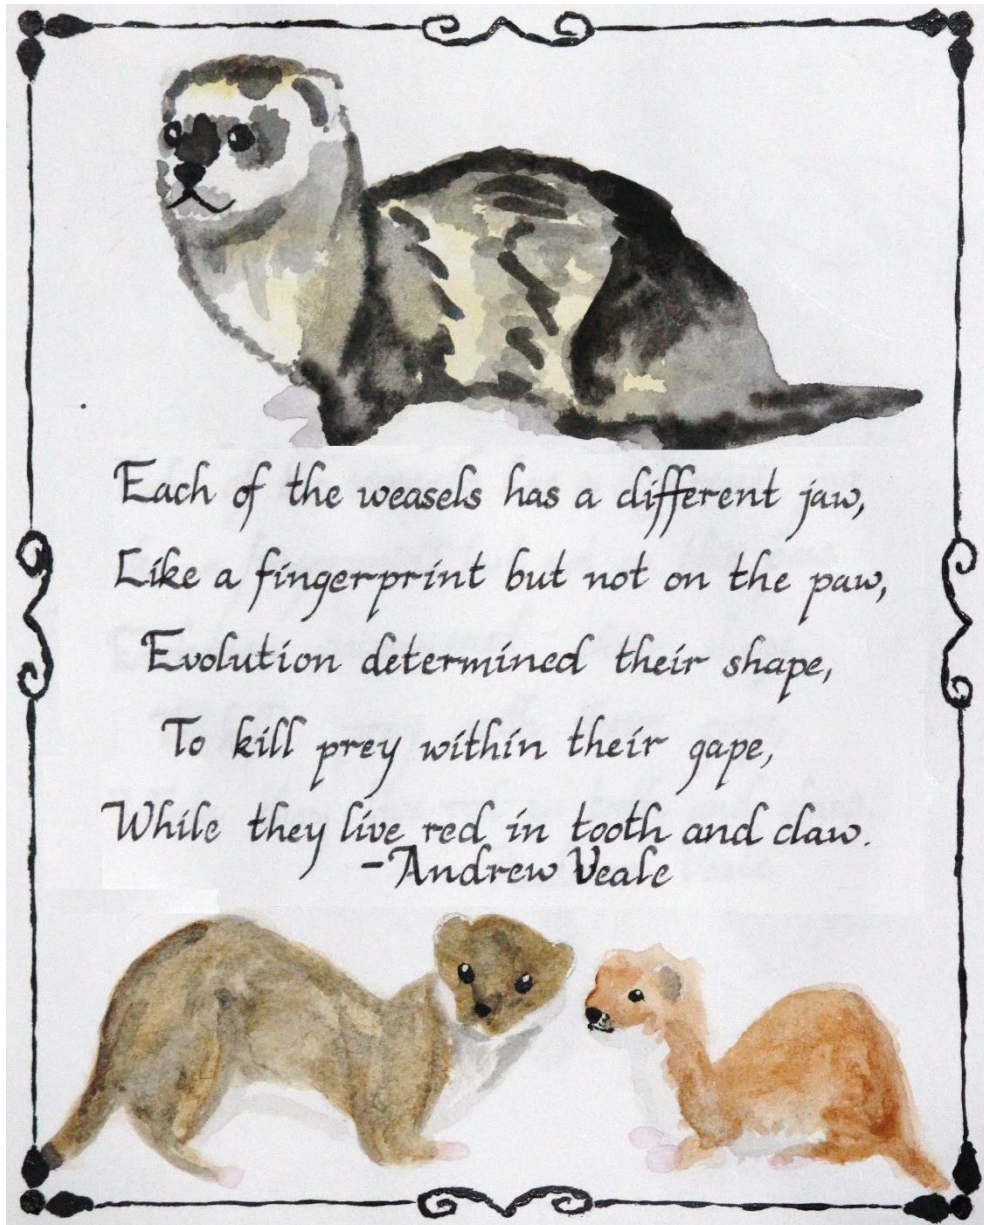 Each of the weasels has a different jaw,
Like a fingerprint but not on the paw,
Evolution determined their shape,
To kill prey within their gape,
While they live red in tooth and claw.
-Andrew Veale